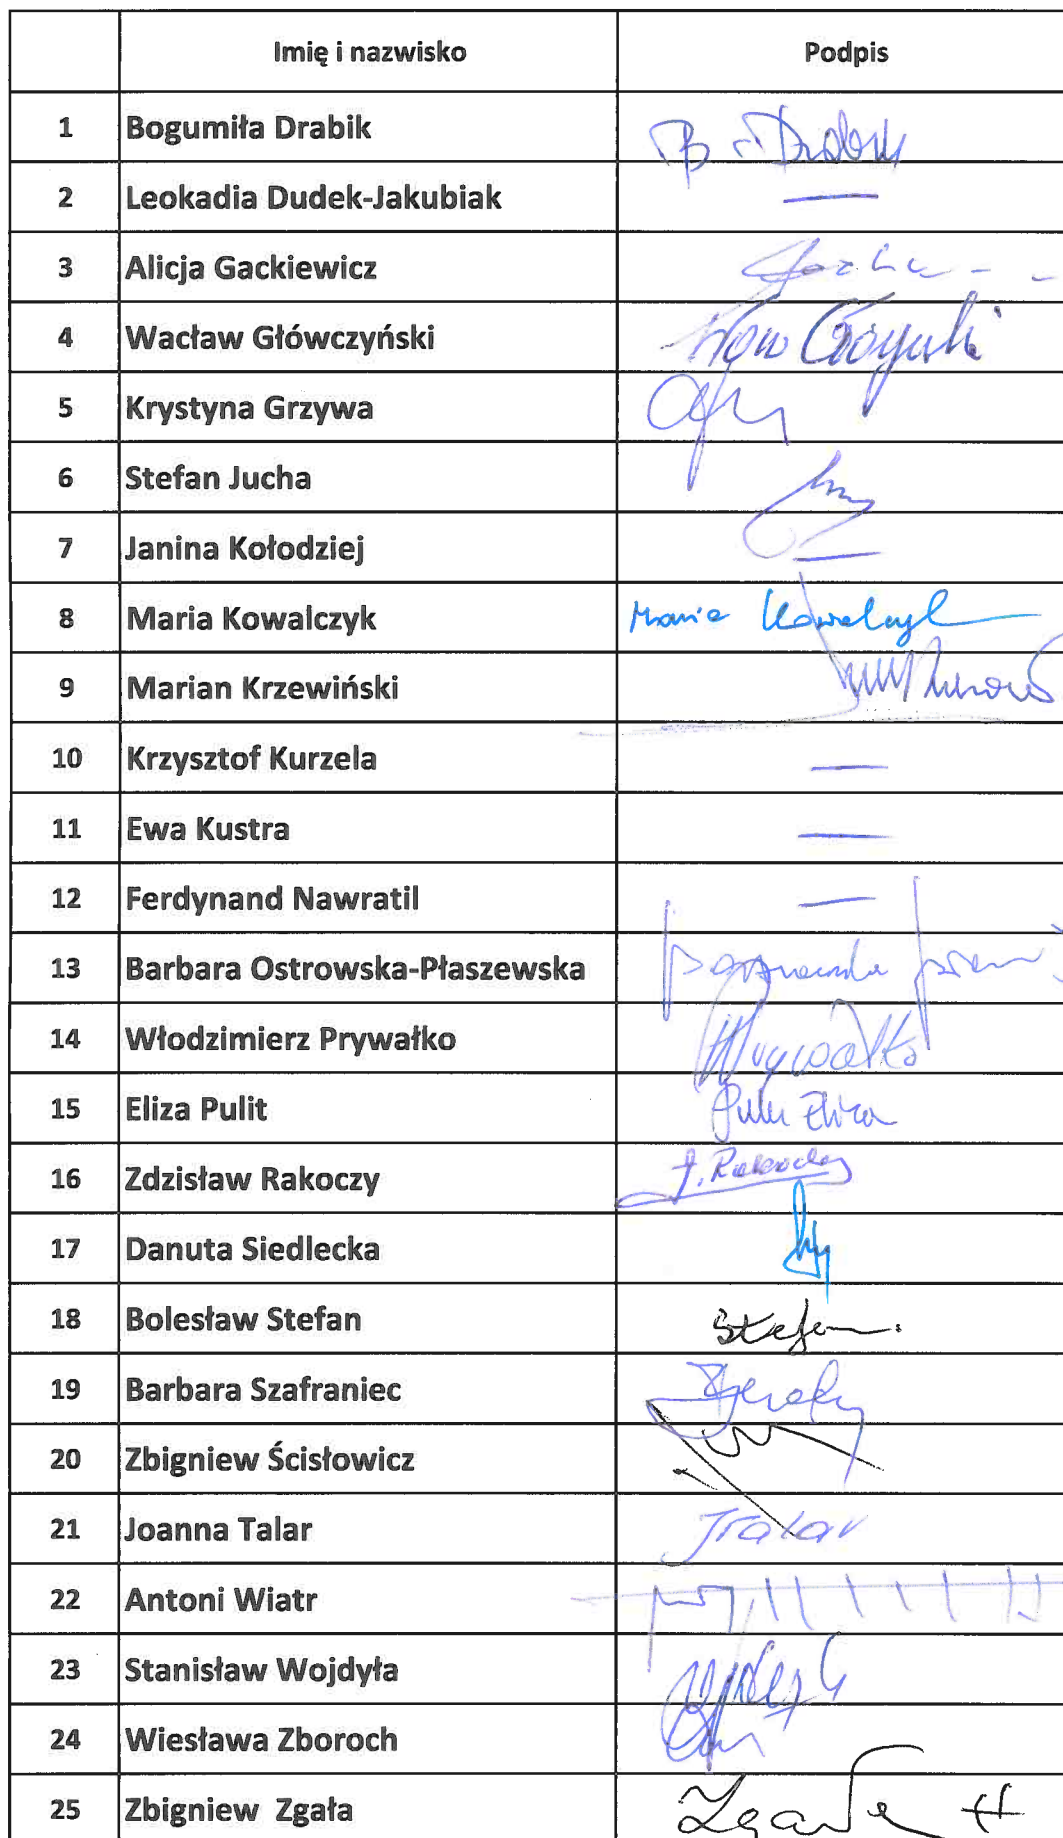 Imię i nazwisko Podpis
1 Bogumiła Drabik B. Drabik
2 Leokadia Dudek-Jakubiak —
3 Alicja Gackiewicz
4 Wacław Główczyński
5 Krystyna Grzywa
6 Stefan Jucha
7 Janina Kołodziej —
8 Maria Kowalczyk Maria Kowalczyk
9 Marian Krzewiński
10 Krzysztof Kurzela —
11 Ewa Kustra —
12 Ferdynand Nawratil —
13 Barbara Ostrowska-Płaszewska
14 Włodzimierz Prywałko Prywałko
15 Eliza Pulit Pulit Eliza
16 Zdzisław Rakoczy Z. Rakoczy
17 Danuta Siedlecka
18 Bolesław Stefan Stefan
19 Barbara Szafraniec
20 Zbigniew Ścisłowicz
21 Joanna Talar JTalar
22 Antoni Wiatr
23 Stanisław Wojdyła
24 Wiesława Zboroch
25 Zbigniew Zgała Zgała